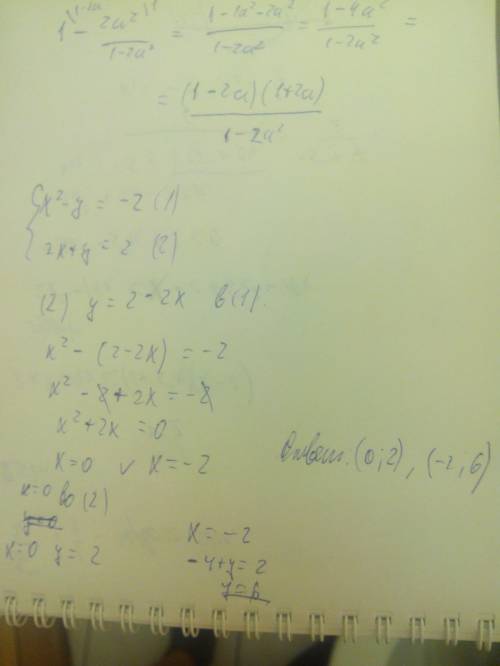 1 - 2a²/(1-2a²) = (1-2a²-2a²)/(1-2a²) = (1-4a²)/(1-2a²) =
= (1-2a)(1+2a)/(1-2a²)
{ x²-y = -2 (1)
2x+y = 2 (2)
(2) y = 2-2x в (1).
x² - (2-2x) = -2
x² - 2 + 2x = -2
x² + 2x = 0
x=0 ∨ x=-2
Ответ. (0;2), (-2,6)
x=0 во (2)
y=0
x=0 y=2
x=-2
-4+y=2
y=6